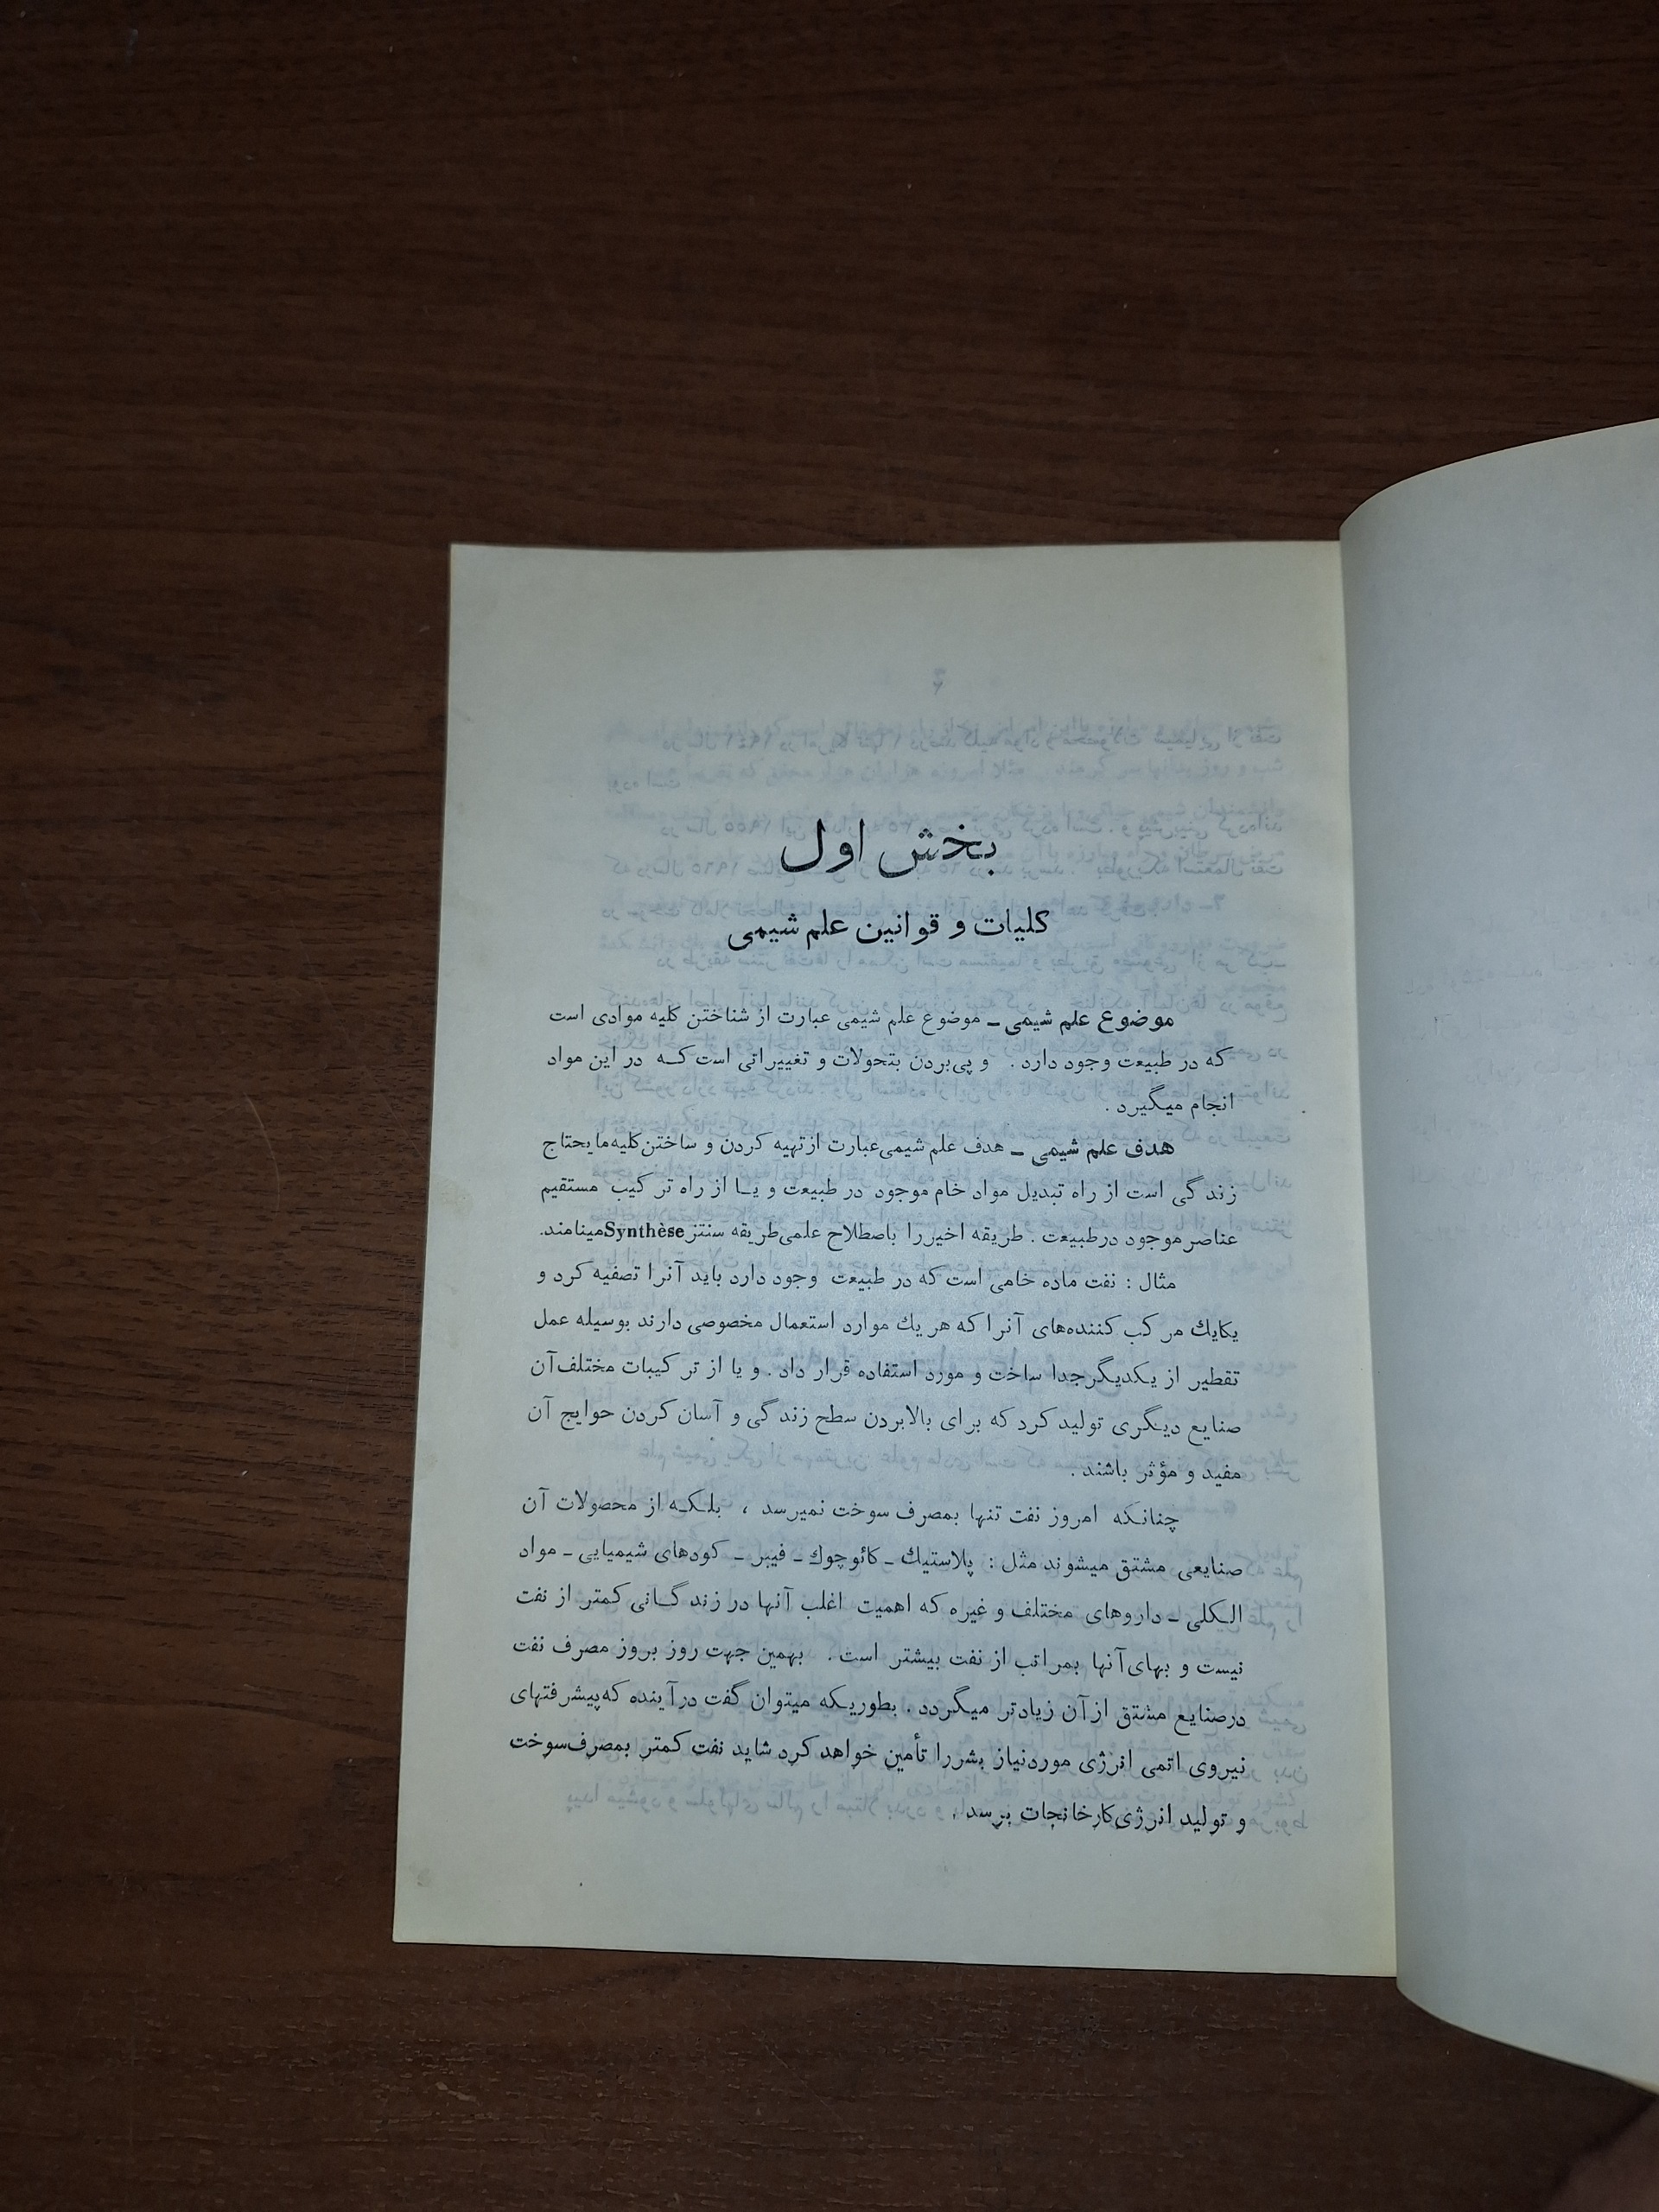 بخش اول
کلیات و قوانین علم شیمی
موضوع علم شیمی ـ موضوع علم شیمی عبارت از شناختن کلیه موادی است
که در طبیعت وجود دارد . و پی‌بردن بتحولات و تغییراتی است که در این مواد
انجام میگیرد .
هدف علم شیمی ـ هدف علم شیمی عبارت از تهیه کردن و ساختن کلیه مایحتاج
زندگی است از راه تبدیل مواد خام موجود در طبیعت و یا از راه ترکیب مستقیم
عناصر موجود در طبیعت . طریقه اخیر را باصطلاح علمی طریقه سنتز Synthèse مینامند.
مثال : نفت ماده خامی است که در طبیعت وجود دارد باید آنرا تصفیه کرد و
یکایك مرکب کننده‌های آنرا که هر یك موارد استعمال مخصوصی دارند بوسیله عمل
تقطیر از یکدیگر جدا ساخت و مورد استفاده قرار داد . و یا از ترکیبات مختلف آن
صنایع دیگری تولید کرد که برای بالابردن سطح زندگی و آسان کردن حوایج آن
مفید و مؤثر باشند .
چنانکه امروز نفت تنها بمصرف سوخت نمیرسد ، بلکه از محصولات آن
صنایعی مشتق میشوند مثل : پلاستیك ـ کائوچوك ـ فیبر ـ کودهای شیمیایی ـ مواد
الکلی ـ داروهای مختلف و غیره که اهمیت اغلب آنها در زندگانی کمتر از نفت
نیست و بهای آنها بمراتب از نفت بیشتر است . بهمین جهت روز بروز مصرف نفت
در صنایع مشتق از آن زیادتر میگردد . بطوریکه میتوان گفت در آینده که پیشرفتهای
نیروی اتمی انرژی مورد نیاز بشر را تأمین خواهد کرد شاید نفت کمتر بمصرف سوخت
و تولید انرژی کارخانجات برسد .